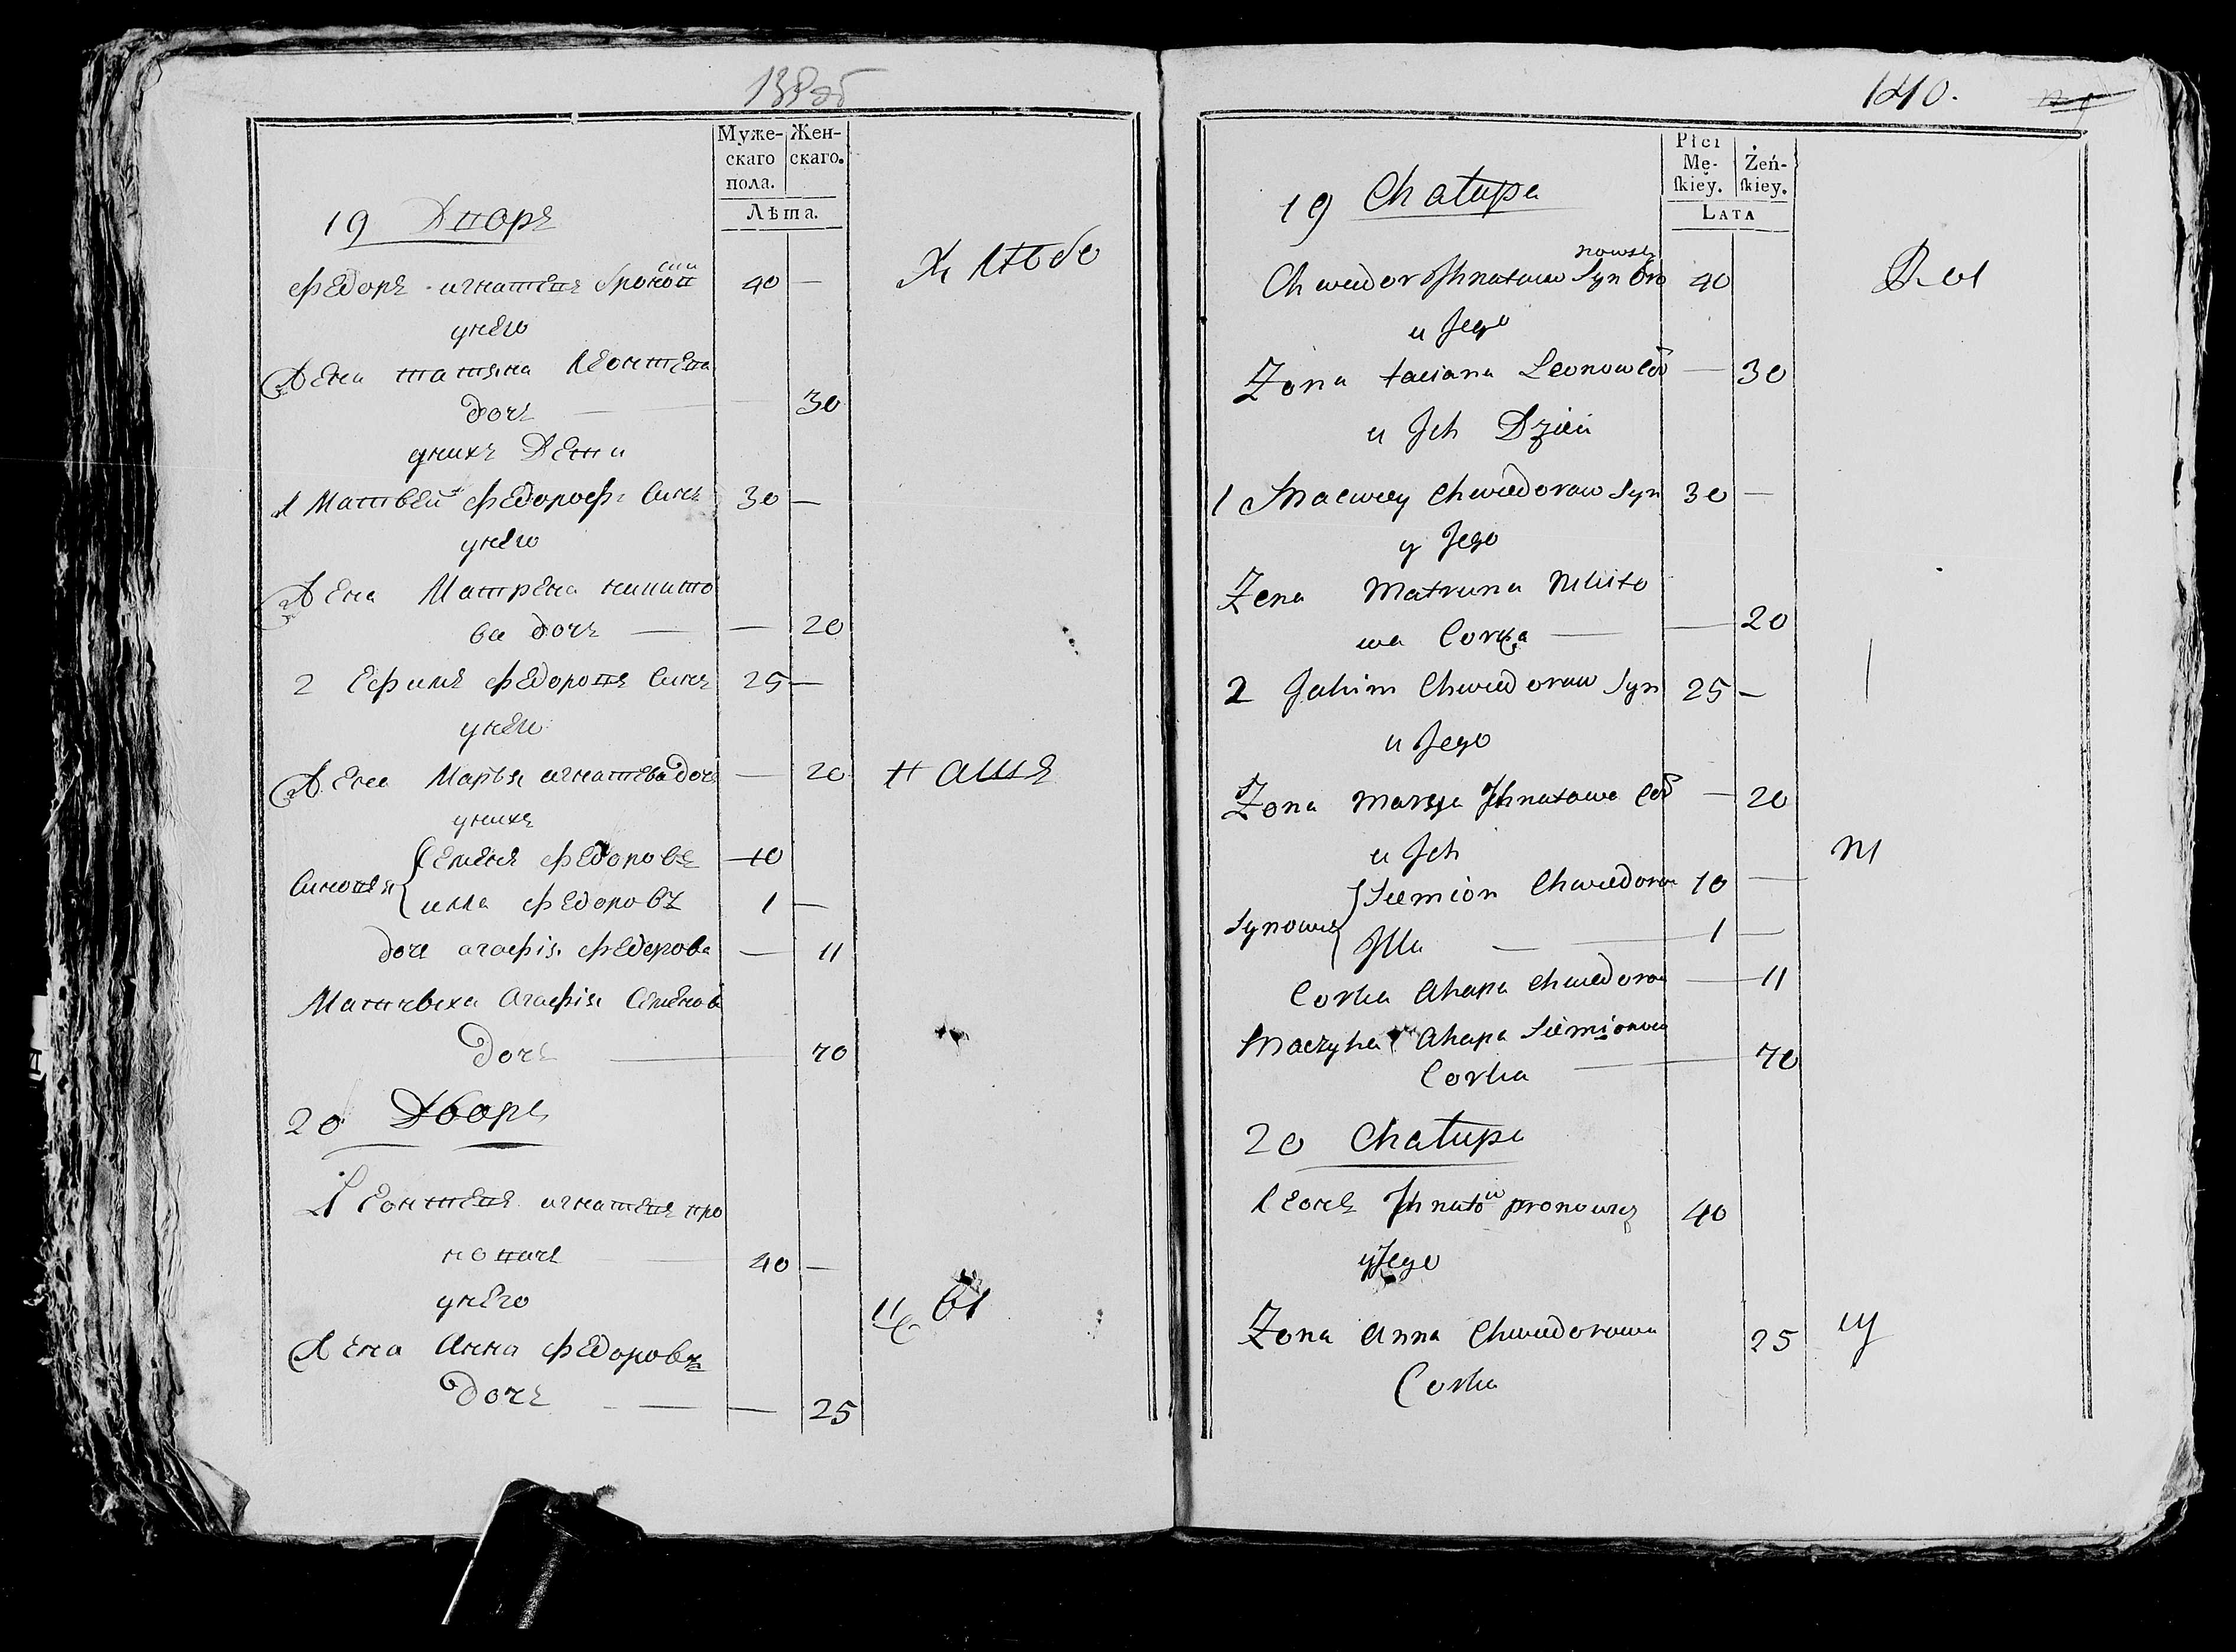 139об
Муже-
скаго
пола.
Жен-
скаго.
Лѣта.
19 Дворъ
Федоръ игнатевъ Пронов 40 —
унего
Жена татяна Леонтева
дочъ — — 30
унихъ Дети
1 Матвей Федороф. Синъ 30 —
унего
Жена Матрена никито
ва дочъ — — 20
2 Ефимъ Федоровъ Синъ 25 —
унего
Жена Маръя игнатева дочъ — 20
унихъ
Синовья { Семенъ Федоровъ 10
илла Федоровъ 1 —
доч агафия Федорова — 11
Матчеха Агафия Семенов
дочъ — 70
20 Дворъ
Леонтевъ игнатевъ про
новичъ — 40 —
унего
Жена Анна Федоровна
дочъ — — 25
140.
Płci
Mę-
skiey.
Żeń-
skiey.
LATA
19 Chałupa
nowicz
Chwiedor Jhnatow Syn Bro 40
u Jego
Żona taciana Leonowa — 30
u Jch Dzieci
1 Maciey Chwiedorow Syn 30 —
y Jego
Żena Matruna Mikito
wa Corka — — 20
2 Jahim Chwiedorow Syn 25 —
u Jego
Żona Marya Jhnatowa Cor — 20
u Jch
Synowie { Siemion Chwiedorow 10 —
Jlla — 1 —
Corka Ahapa Chwiedorow — 11
Maczyha Ahapa Siemionowa
Corka — 70
20 Chałupa
Leonъ Jhnato pronowicz 40
yJego
Żona Anna Chwiedorowa 25
Corka